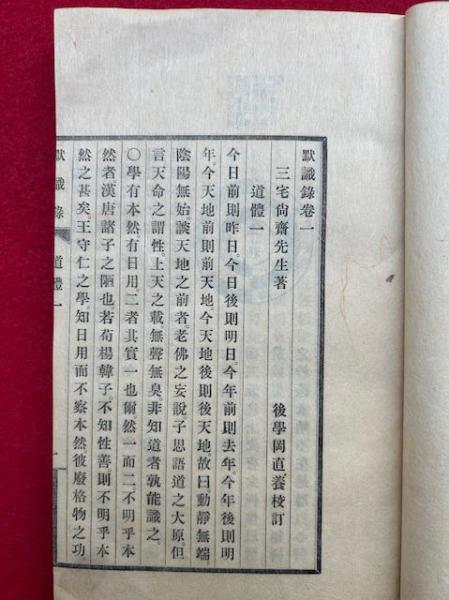 默識錄卷一
三宅尙齋先生著　後學岡直養校訂
道體一
今日前則昨日。今日後則明日今年前則去年。今年後則明
年。今天地前則前天地。今天地後則後天地。故曰動靜無端
陰陽無始。談天地之前者。老佛之妄說。子思語道之大原。但
言天命之謂性。上天之載無聲無臭。非知道者。孰能識之。
○學有本然。有日用。二者其實一也。爾然一而二。不明乎本
然者。漢唐諸子之陋也。若荀楊韓子。不知性善。則不明乎本
然之甚矣。王守仁之學。知日用而不察本然。彼廢格物之功。
默識錄　道體一　一